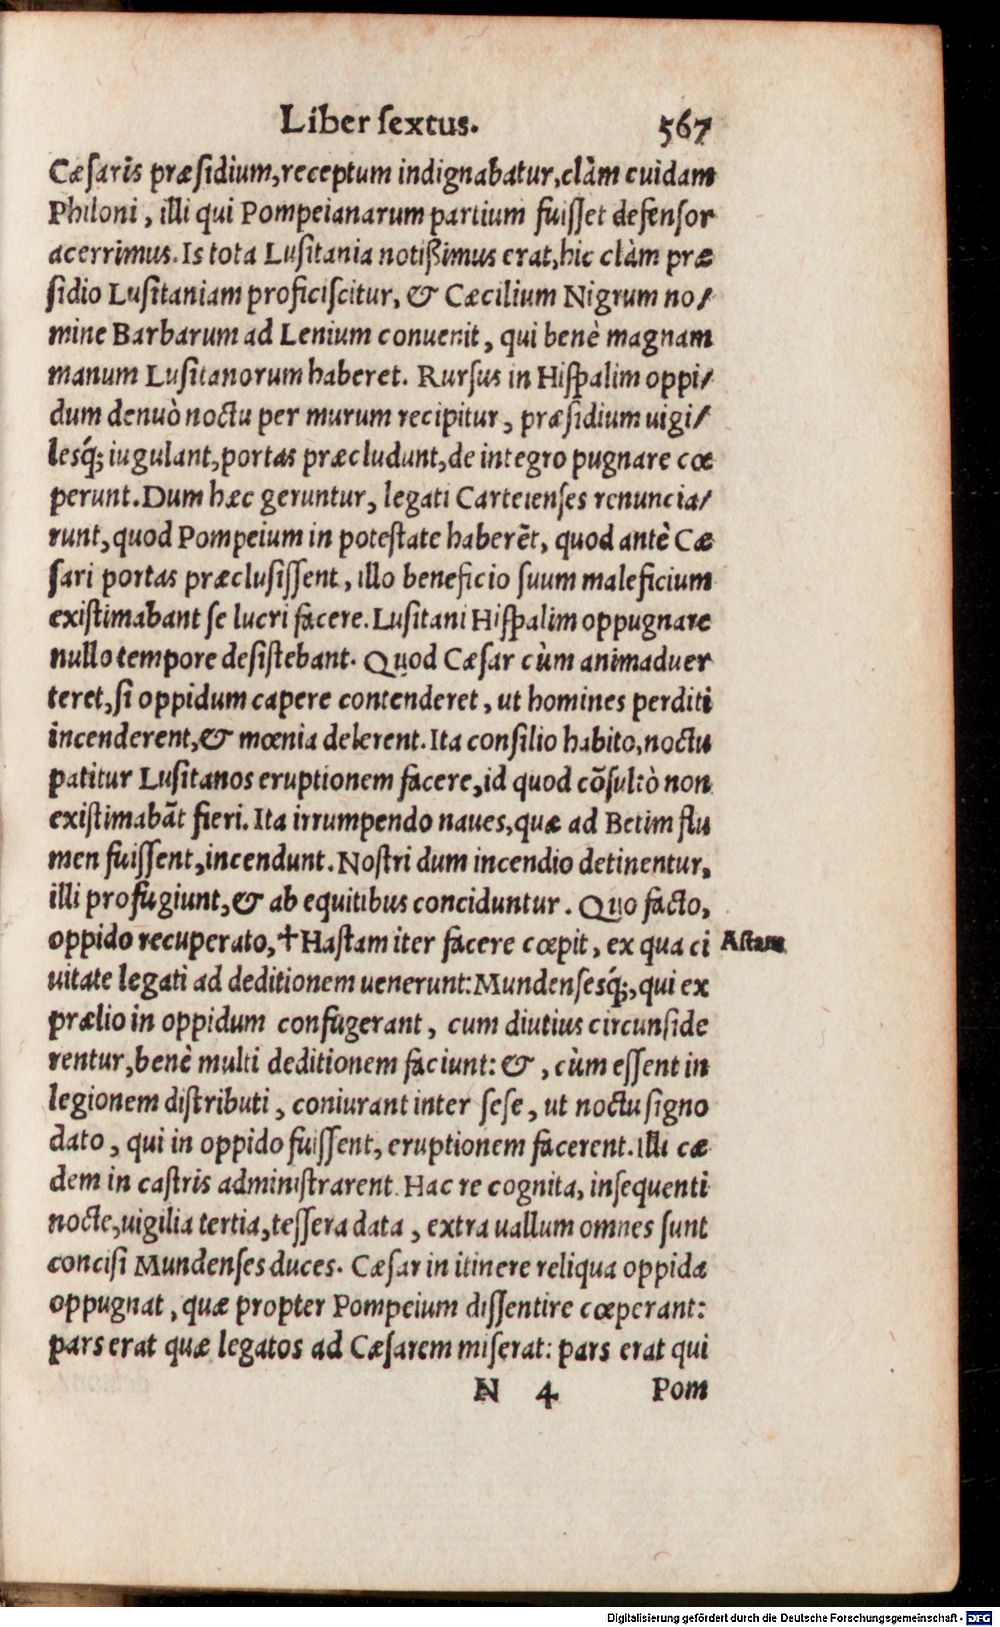 Liber ſextus. 567
Cæſaris præſidium, receptum indignabatur, clàm cuidam
Philoni, illi qui Pompeianarum partium fuiſſet defenſor
acerrimus. Is tota Luſitania notißimus erat, hic clàm præ
ſidio Luſitaniam proficiſcitur, & Cæcilium Nigrum no/
mine Barbarum ad Lenium conuenit, qui benè magnam
manum Luſitanorum haberet. Rurſus in Hiſpalim oppi/
dum denuò noctu per murum recipitur, præſidium uigi/
lesq́; iugulant, portas præcludunt, de integro pugnare cœ
perunt. Dum hæc geruntur, legati Carteienſes renuncia/
runt, quod Pompeium in poteſtate haberēt, quod antè Cæ
ſari portas præcluſiſſent, illo beneficio ſuum maleficium
exiſtimabant ſe lucri facere. Luſitani Hiſpalim oppugnare
nullo tempore deſiſtebant. Quod Cæſar cùm animaduer
teret, ſi oppidum capere contenderet, ut homines perditi
incenderent, & mœnia delerent. Ita conſilio habito, noctu
patitur Luſitanos eruptionem facere, id quod cōſultò non
exiſtimabāt fieri. Ita irrumpendo naues, quæ ad Betim flu
men fuiſſent, incendunt. Noſtri dum incendio detinentur,
illi profugiunt, & ab equitibus conciduntur. Quo facto,
oppido recuperato, †Haſtam iter facere cœpit, ex qua ci
Aſtam
uitate legati ad deditionem uenerunt: Mundenſesq́;, qui ex
prælio in oppidum confugerant, cum diutius circunſide
rentur, benè multi deditionem faciunt: &, cùm eſſent in
legionem diſtributi, coniurant inter ſeſe, ut noctu ſigno
dato, qui in oppido fuiſſent, eruptionem facerent. illi cæ
dem in caſtris adminiſtrarent. Hac re cognita, inſequenti
nocte, uigilia tertia, teſſera data, extra uallum omnes ſunt
conciſi Mundenſes duces. Cæſar in itinere reliqua oppida
oppugnat, quæ propter Pompeium diſſentire cœperant:
pars erat quæ legatos ad Cæſarem miſerat: pars erat qui
N 4 Pom
Digitalisierung gefördert durch die Deutsche Forschungsgemeinschaft - DFG